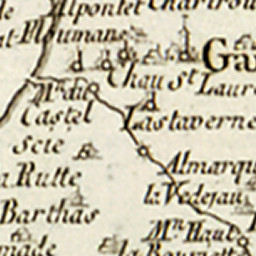 Alpontet Chartrou
le
at Ploumans
Ga
Chau St Laure
Mn du
Castel
Lastaverne
Seie
Almarqu
a Rutte
la Vedejau
Barthas
Mn Haut
made
la Bournett